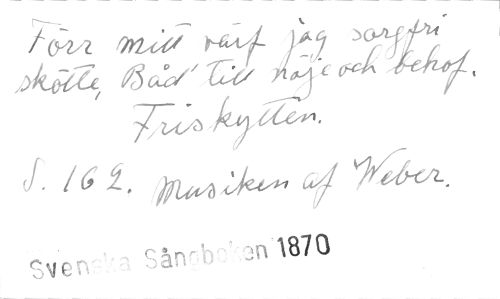 Förr mitt värf jag sorgfri
skötte, Båd' till nöje och behof.
Friskytten.
S. 162. Musiken af Weber.
Svenska Sångboken 1870